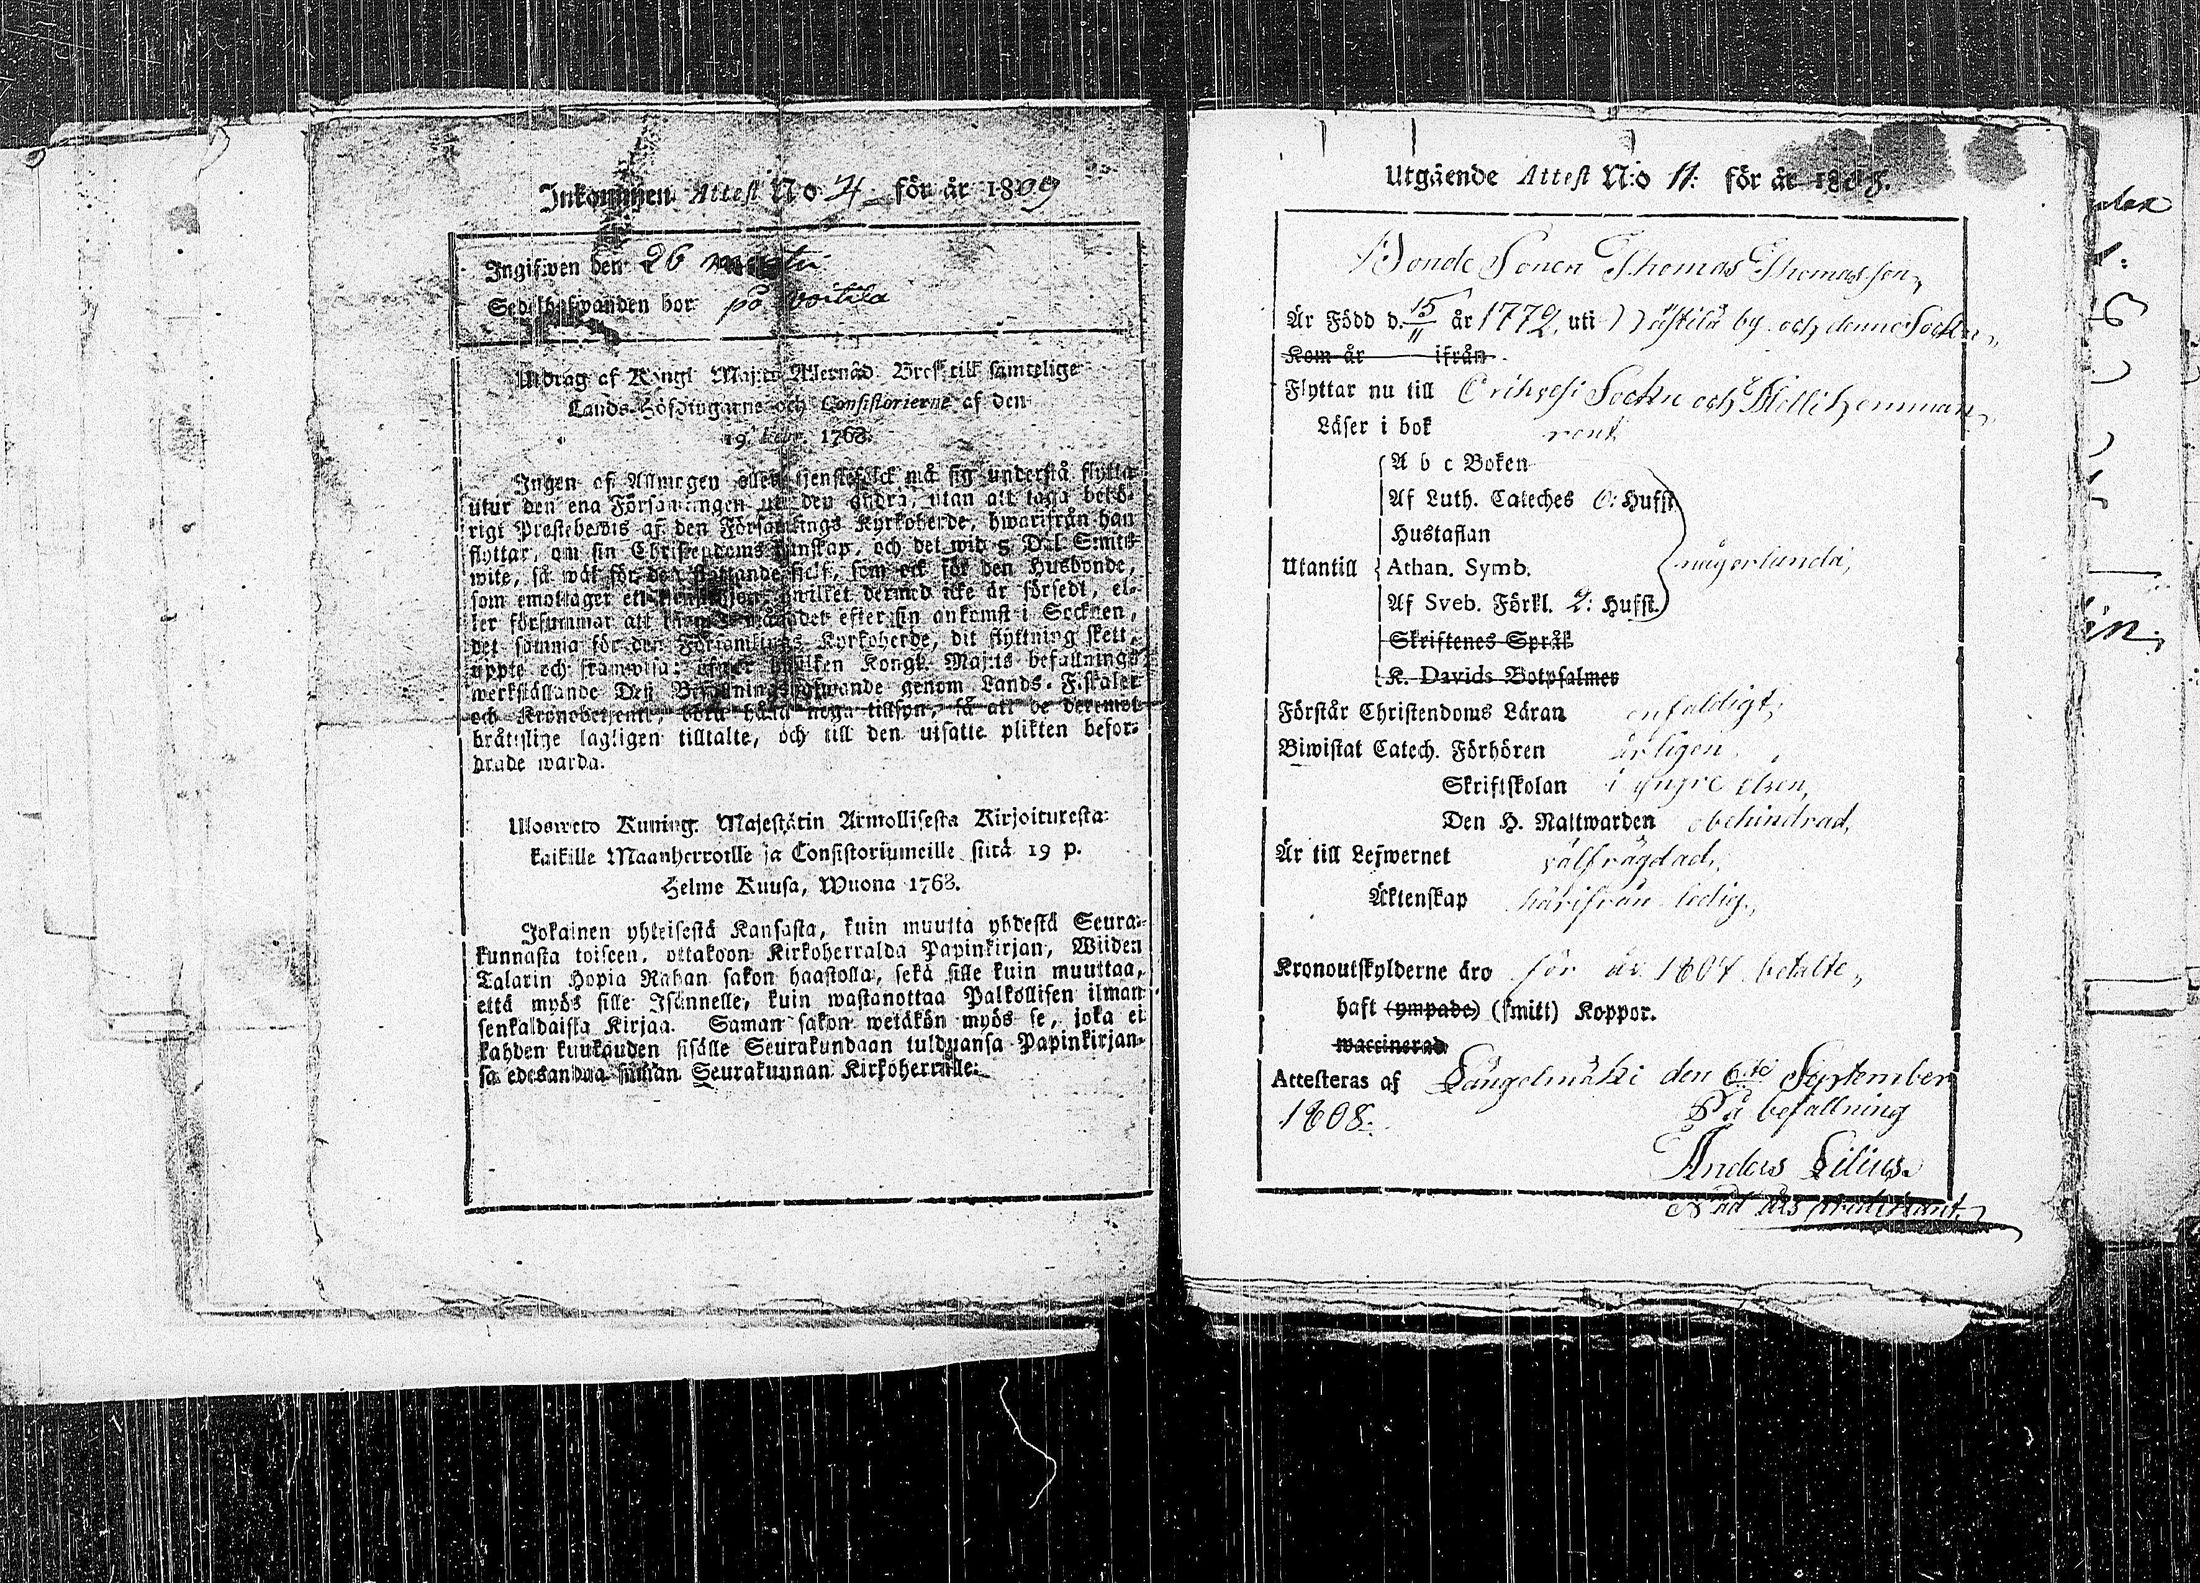 Inkommen Attest No 4 för år 1809
Ingifwen den 26
Sedelhafwanden bor på Voitila
Utdrag af Kongl. Maj:ts Allernåd. Bref till samtelige
Lands-Höfdingarne och Consistorierne af den
19 Febr. 1768.
Ingen af Allmogen eller tjenstefolck må sig understå flytta
utur den ena Församlingen uti den andra, utan att taga behö-
rigt Prestebewis af den Församlings Kyrkoherde, hwarifrån han
flyttar, om sin Christendoms kunskap, och det wid 5 Dal. S:mts
wite, så wäl för den flyttande sjelf, som ock för den Husbonde,
som emottager ett tjenstehjon, hwilket dermed icke är försedt, el-
ler försummar att inom månadet efter sin ankomst i Socknen,
det samma för den Församlings Kyrkoherde, dit flyttning skett,
uppte och framwisa: öfwer hwilken Kongl. Maj:ts befallnings
werkställande Dess Befallningshafwande genom Lands-Fiskaler
och Kronobetjente, böra hålla noga tillsyn, så att de deremot
bråttslige lagligen tilltalte, och till den utsatte plikten befor-
drade warda.
Uloswето Kuning. Majestätin Armollisesta Kirjoituresta
kaikille Maanherroille ja Consistoriumeille siitä 19 p.
Helme Kuusa, Wuona 1768.
Jokainen yhteisestä Kansasta, kuin muutta yhdestä Seura-
kunnasta toiseen, ottakoon Kirkoherralda Papinkirjan, Wiiden
Talarin Hopia Rahan sakon haastolla, sekä sille kuin muuttaa,
että myös sille Isännelle, kuin wastanottaa Palkollisen ilman
senkaldaista Kirjaa. Saman sakon wetäkön myös se, joka ei
kahden kuukauden sisälle Seurakundaan tulduansa Papinkirjan-
sa edesanna saman Seurakunnan Kirkoherralle.
Utgående Attest N:o 11: för år 1808.
Bonde Sonen Thomas Thomasson,
Är Född d. 15/11 år 1772, uti Västilä by och denne Sockn,
Kom år ifrån
Flyttar nu till Orihvesi Sockn och Hemman,
Läser i bok rent
A b c Boken
Af Luth. Cateches 6: Hufst.
Hustaflan
Utantill Athan. Symb. någorlunda,
Af Sveb. Förkl. 2: Hufst.
Skriftenes Språk
K. Davids Botpsalmer
Förstår Christendoms Läran enfaldigt,
Biwistat Catech. Förhören årligen
Skriftskolan i yngre åren,
Den H. Nattwarden obehindrad,
Är till Lefwernet välfrägdad,
Äktenskap härifrån ledig,
Kronoutskylderne äro för år 1807 betalte,
haft (ympade) (smitt) Koppor.
waccinerad
Attesteras af Längelmäki den 6:te September
1808. På befallning
Anders Lilius.